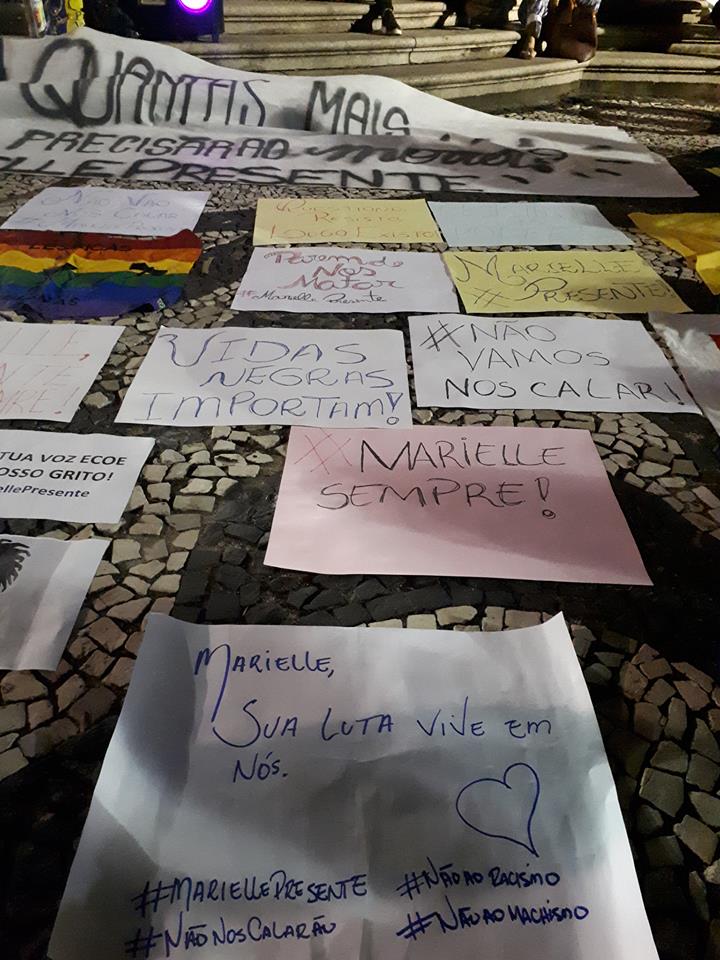 QUANTAS MAIS
PRECISARÃO morrer?
ELLE PRESENTE
NÃO VÃO
NOS CALAR
QUESTIONE
RESISTA
LOGO EXISTO
LÉSBICAS
PAREM DE
NOS
MATAR
#Marielle Presente
MARIELLE
#PRESENTE!
VIDAS
NEGRAS
IMPORTAM!
#NÃO
VAMOS
NOS CALAR!
TUA VOZ ECOE
OSSO GRITO!
iellePresente
#MARIELLE
SEMPRE!
MARIELLE,
SUA LUTA VIVE EM
NÓS.
#MARIELLEPRESENTE
#NÃONOSCALARÃO
#NÃOAORACISMO
#NÃOAOMACHISMO